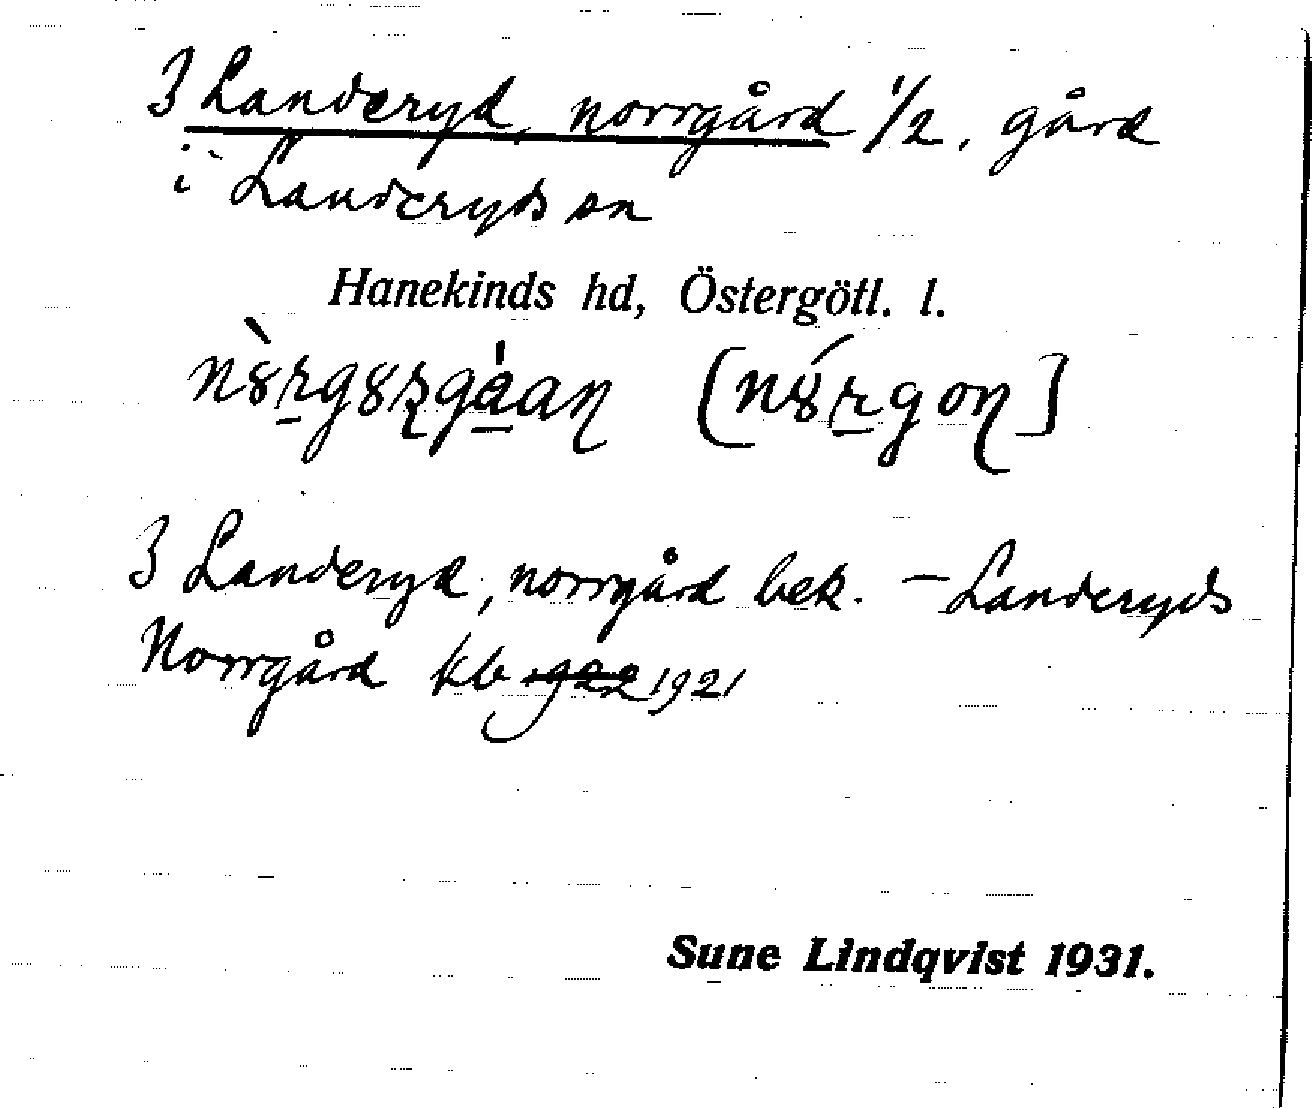 3 Landeryd, norrgård 1/2, gård
i Landeryds sn
Hanekinds hd, Östergötl. l.
3 Landeryd, norrgård bek. – Landeryds
Norrgård kb 1922 1921
Sune Lindqvist 1931.